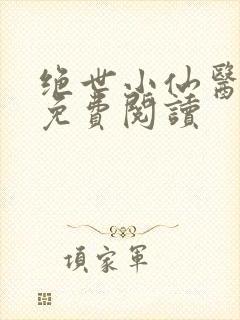 绝世小仙醫
免費閱讀
項家軍